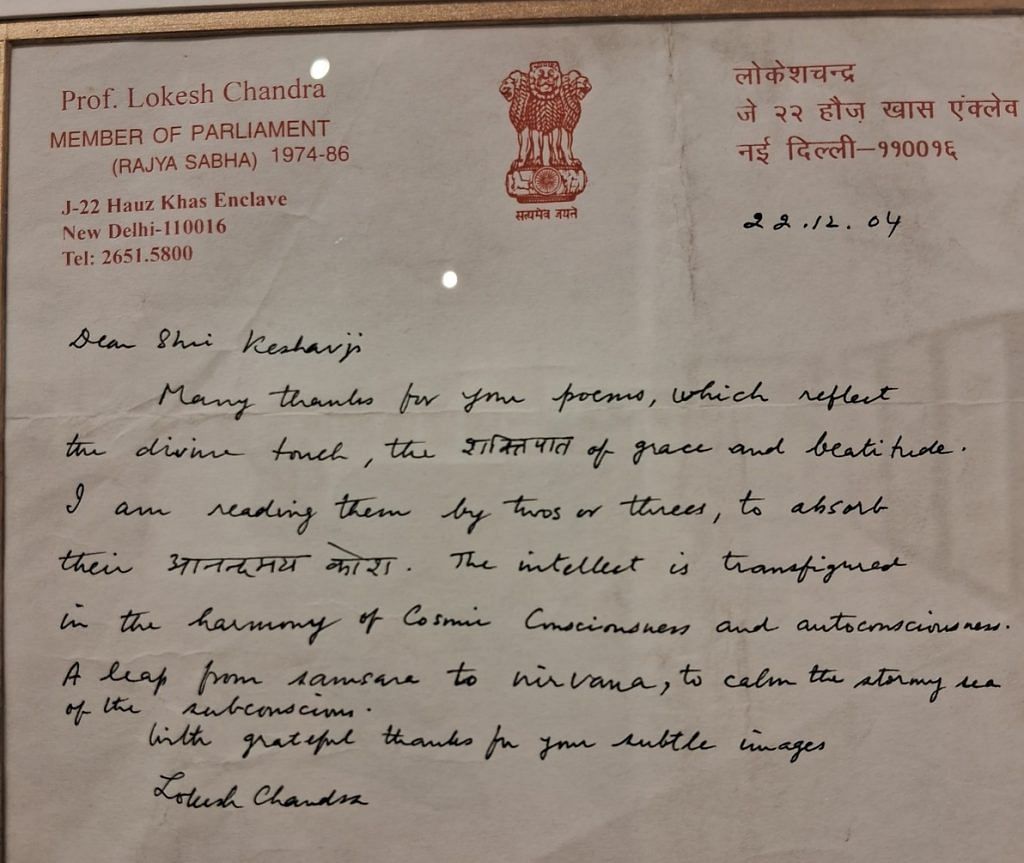 Prof. Lokesh Chandra
MEMBER OF PARLIAMENT
(RAJYA SABHA) 1974-86
J-22 Hauz Khas Enclave
New Delhi-110016
Tel: 2651.5800
सत्यमेव जयते
लोकेशचन्द्र
जे २२ हौज़ खास एंक्लेव
नई दिल्ली-११००१६
22.12.04
Dear Shri Keshavji
Many thanks for your poems, which reflect
the divine touch, the शक्तिपात of grace and beatitude.
I am reading them by twos or threes, to absorb
their आनन्दमय कोश. The intellect is transfigured
in the harmony of Cosmic Consciousness and autoconsciousness.
A leap from samsara to nirvana, to calm the stormy sea
of the subconscious.
With grateful thanks for your subtle images
Lokesh Chandra